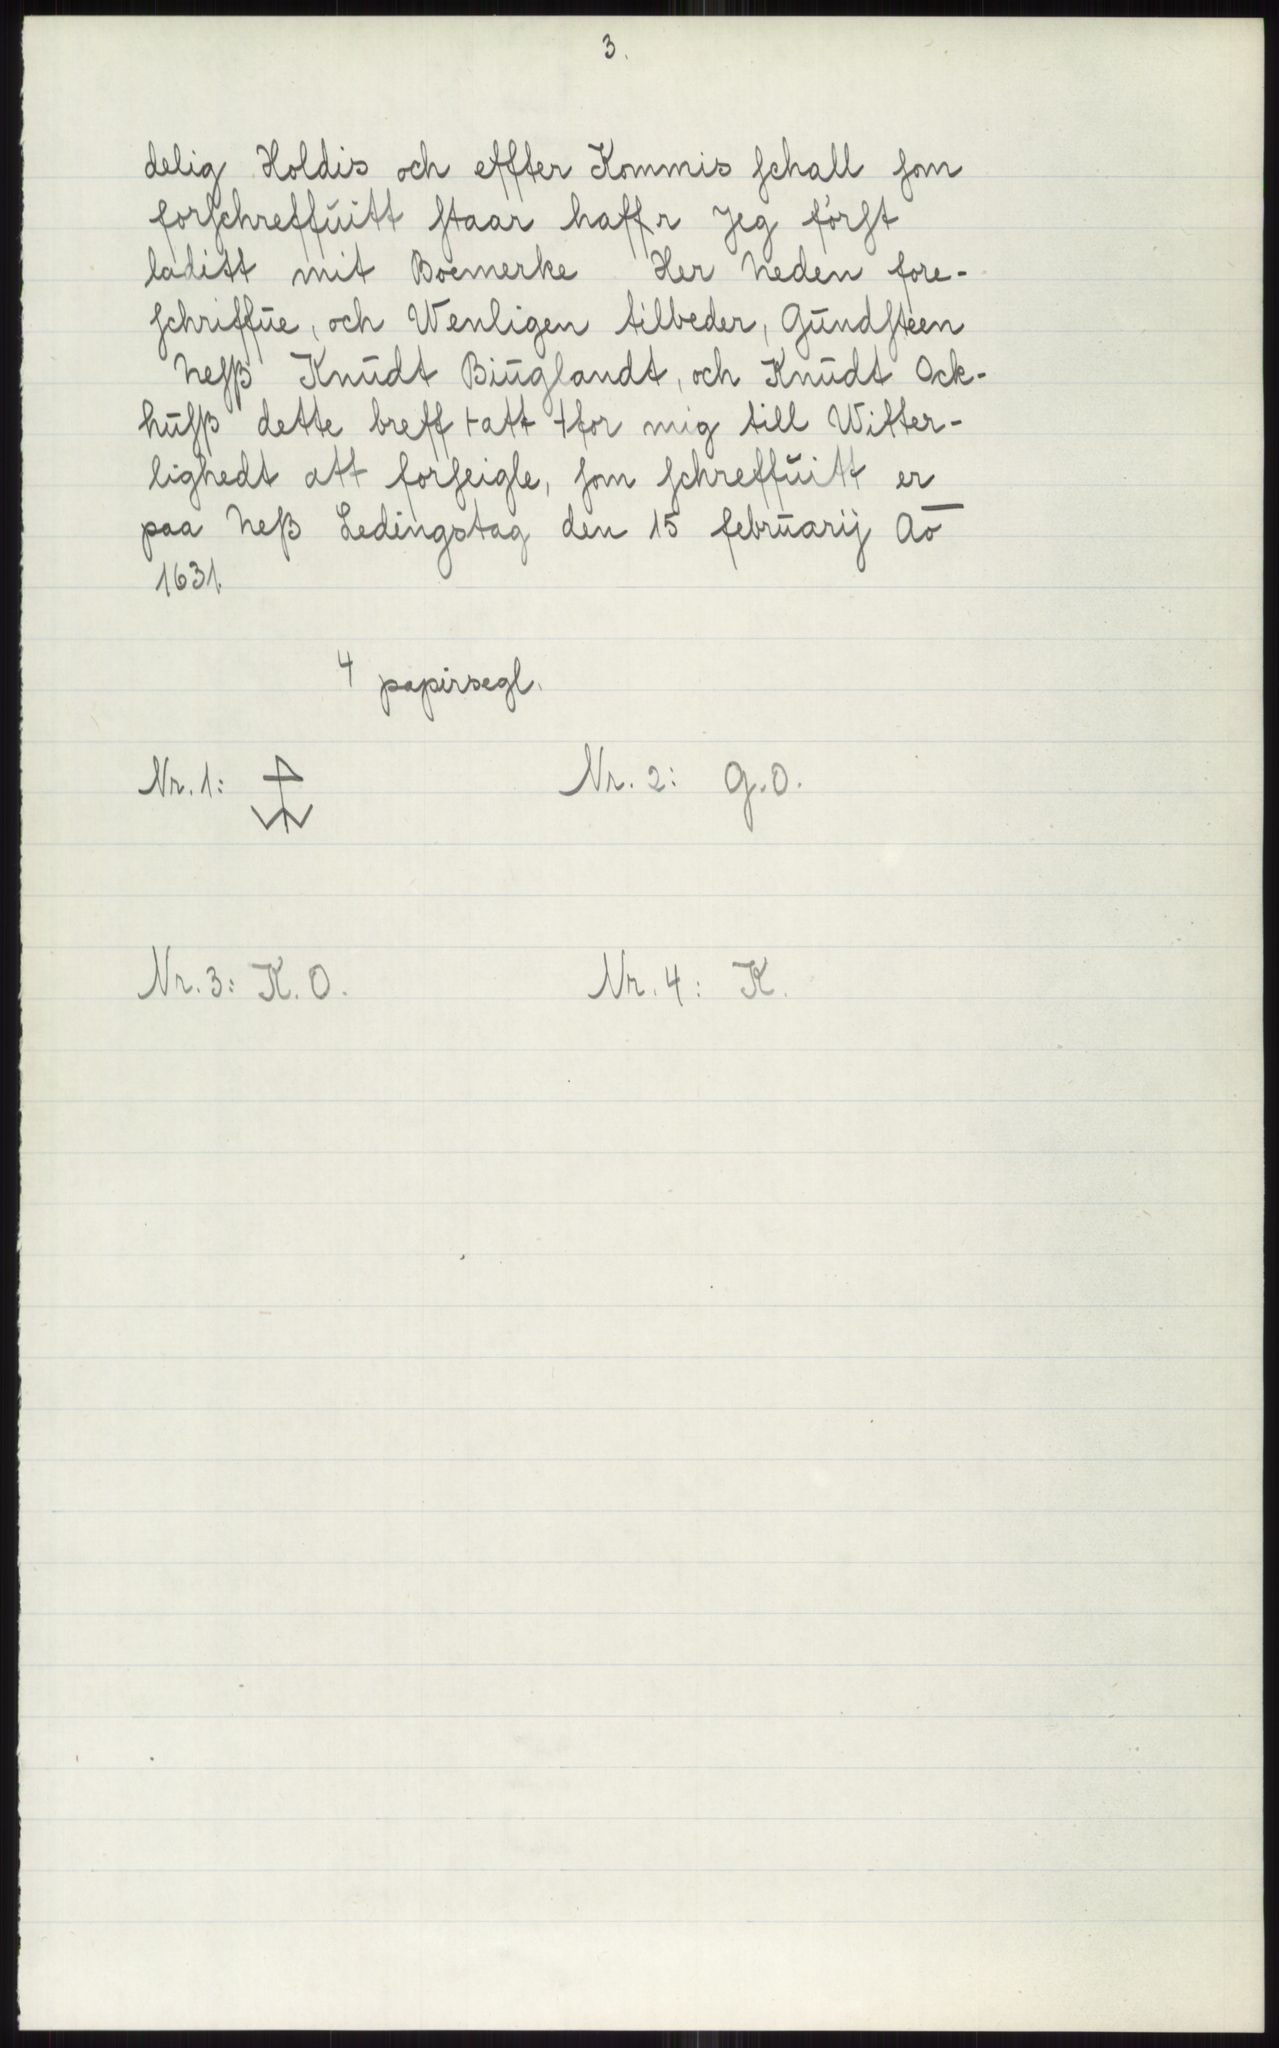 3.
delig Holdis och effter Kommis schall som
forschreffuitt staar haffr Jeg först
laditt mit Boemerke Her Neden fore-
schriffue, och Wenligen tilbeder, Gundsteen
Nesß Knudt Biuglandt, och Knudt Ock-
husß dette breff +att +for mig till Witter-
lighedt att forseigle, som schreffuitt er
paa Neß Ledingstag den 15 februarij Ao
1631.
4 papirsegl.
Nr. 1: Nr. 2: G.O.
Nr. 3: K.O. Nr. 4: K.